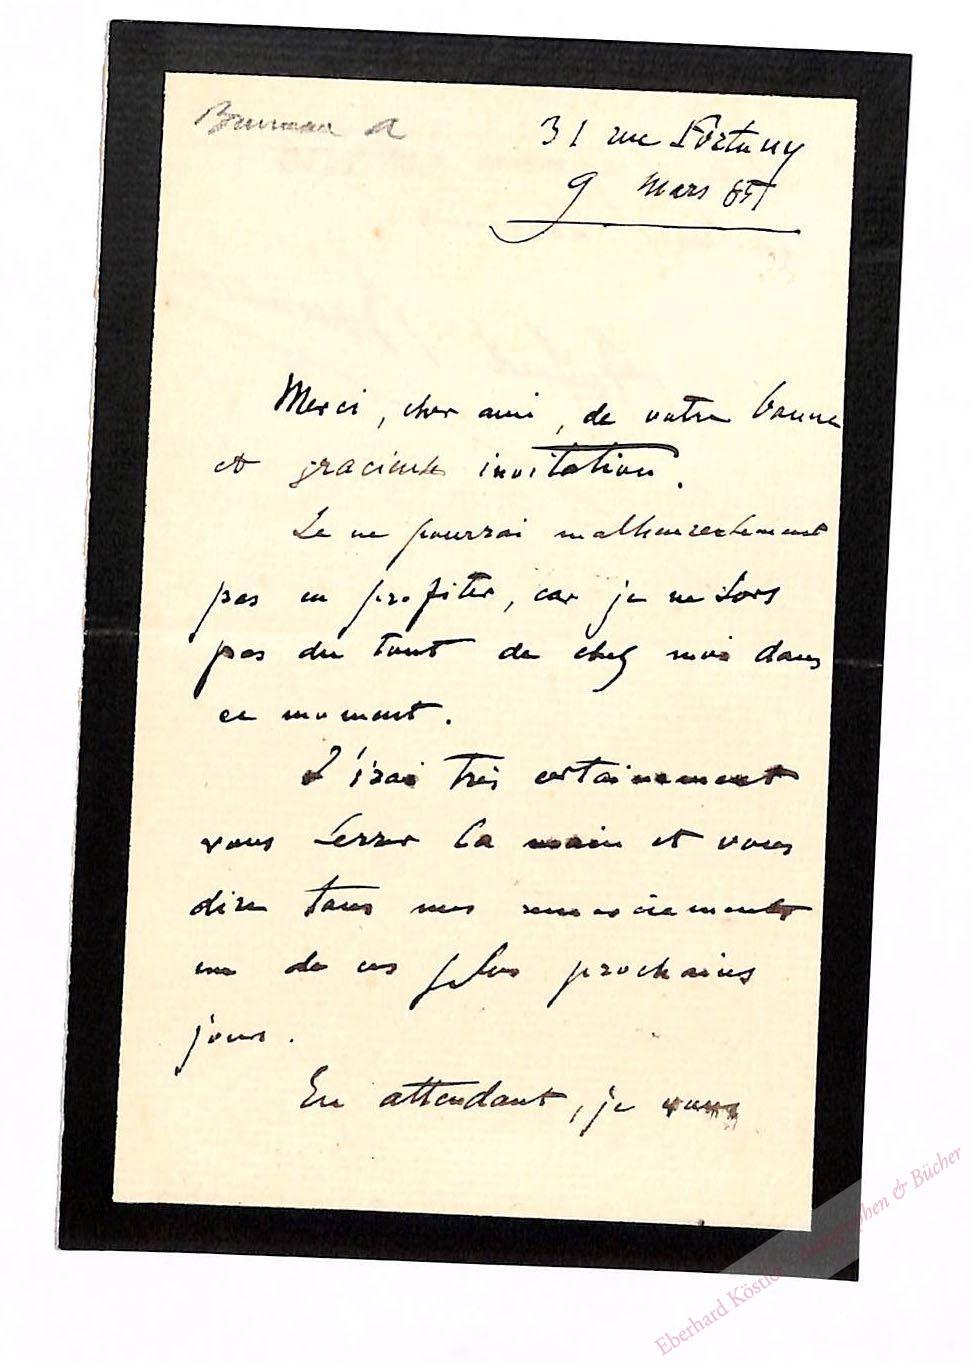 Bruneau A
31 rue Fortuny
9 Mars 85
Merci, cher ami, de votre bonne
et gracieuse invitation.
Je ne pourrai malheureusement
pas en profiter, car je ne sors
pas du tout de chez moi dans
ce moment.
J'irai très certainement
vous serrer la main et vous
dire tous mes remerciements
un de ces plus prochains
jours.
En attendant, je vous
Eberhard Köstler Autographen & Bücher